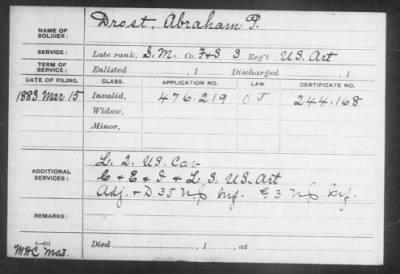 NAME OF SOLDIER: Drost, Abraham P.
SERVICE: Late rank, S. M. Co. F&S, 3 Reg't U.S. Art
TERM OF SERVICE: Enlisted , 1 Discharged , 1
DATE OF FILING. CLASS. APPLICATION NO. LAW. CERTIFICATE NO.
1883 Mar 15 Invalid, 476.219 O J 244.168
Widow,
Minor,
ADDITIONAL SERVICES: L. 2. U.S. Cav
C & E & I & L 3. U.S. Art
Adj. & D 35 N.J. Inf. E. 3 N.J. Inf.
REMARKS:
Died , 1 , at